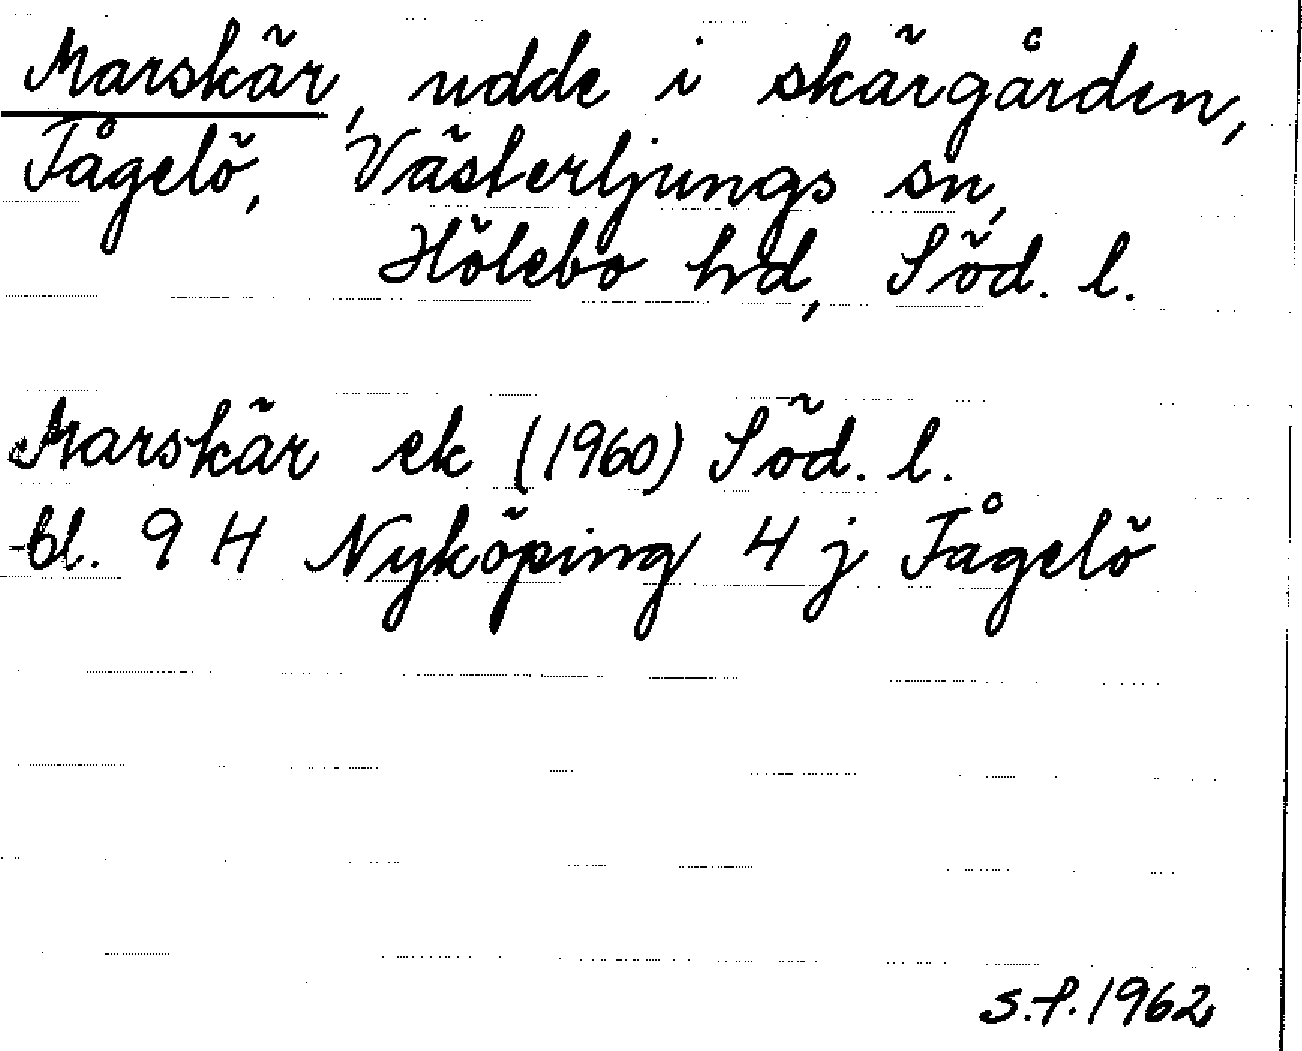 Marskär, udde i skärgården,
Fågelö, Västerljungs sn,
Hölebo hd, Söd. l.
Marskär ek (1960) Söd. l.
bl. 9 H Nyköping 4 j Fågelö
S.F. 1962